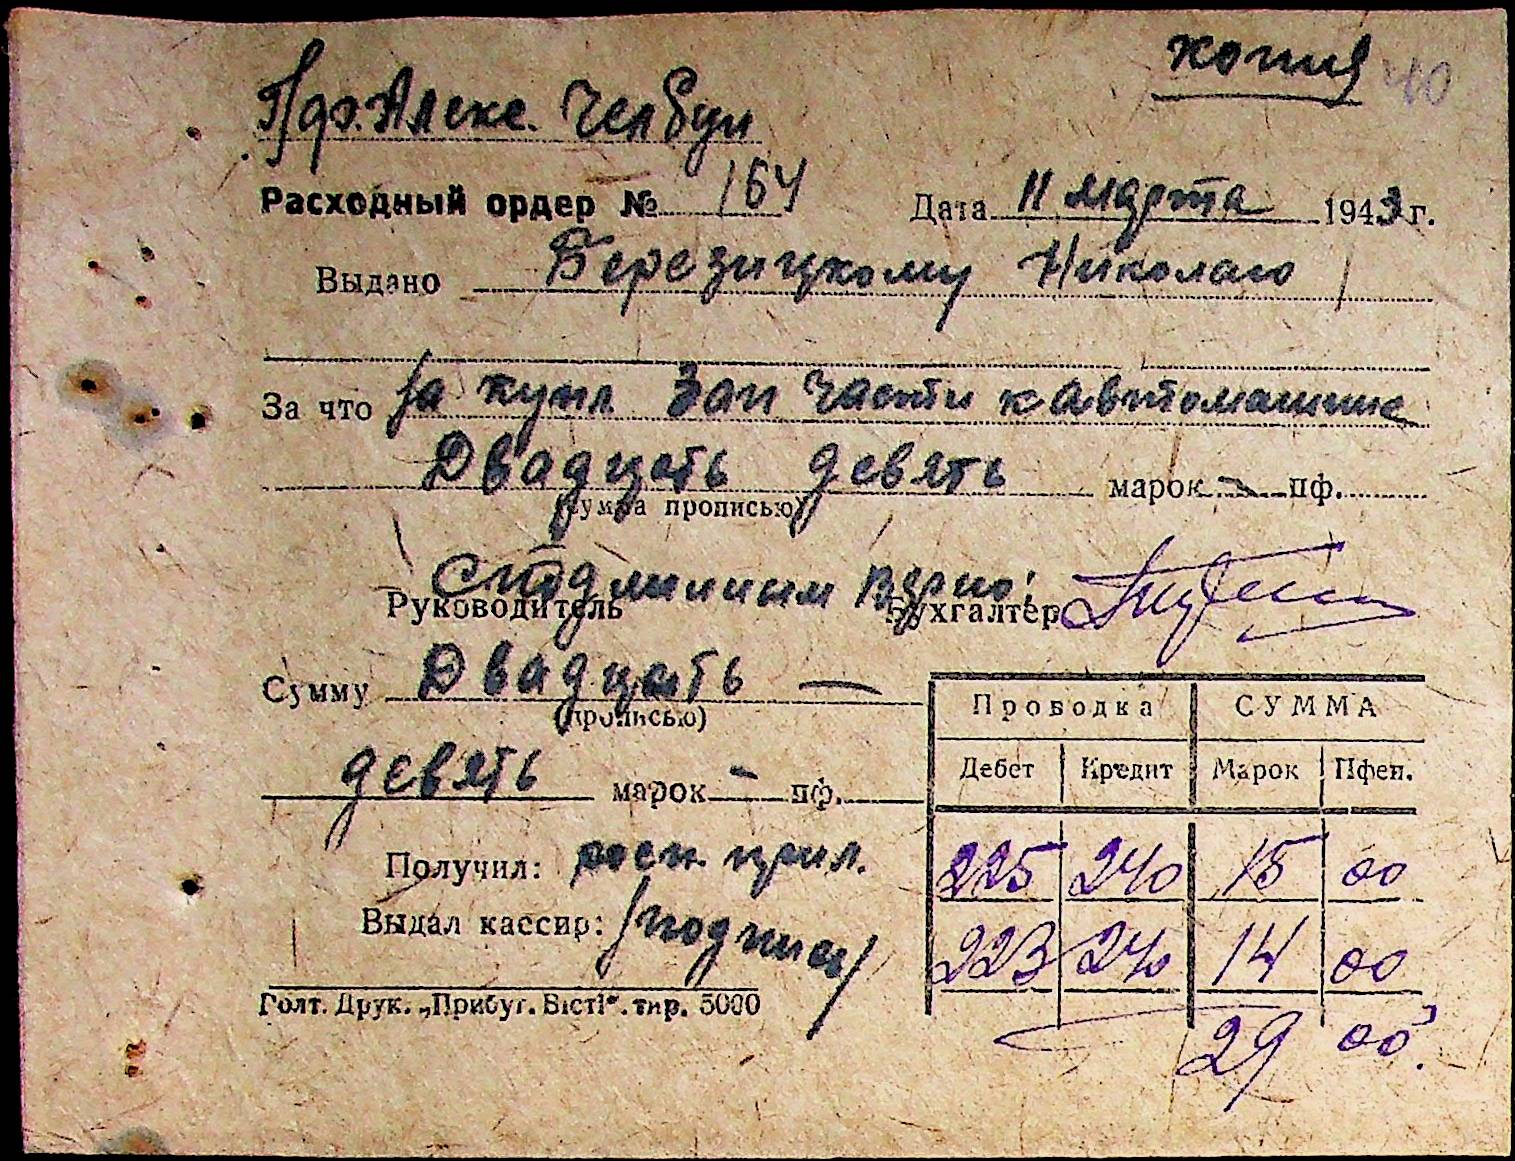 копия 40
Пдр. Алекс. Челбун
Расходный ордер № 164 Дата 11 марта 1943 г.
Выдано Березицкому Николаю
За что за купл. Зап части к автомашине
Двадцать девять марок — пф.
(сумма прописью)
С подлинным верно!
Руководитель Бухгалтер
Сумму Двадцать —
(прописью)
девять марок — пф.
Проводка СУММА
Дебет Кредит Марок Пфен.
225 240 15 00
223 240 14 00
29 00
Получил: росп. прил.
Выдал кассир: /подпись/
Голт. Друк. „Прибуг. Вісті". тир. 5000